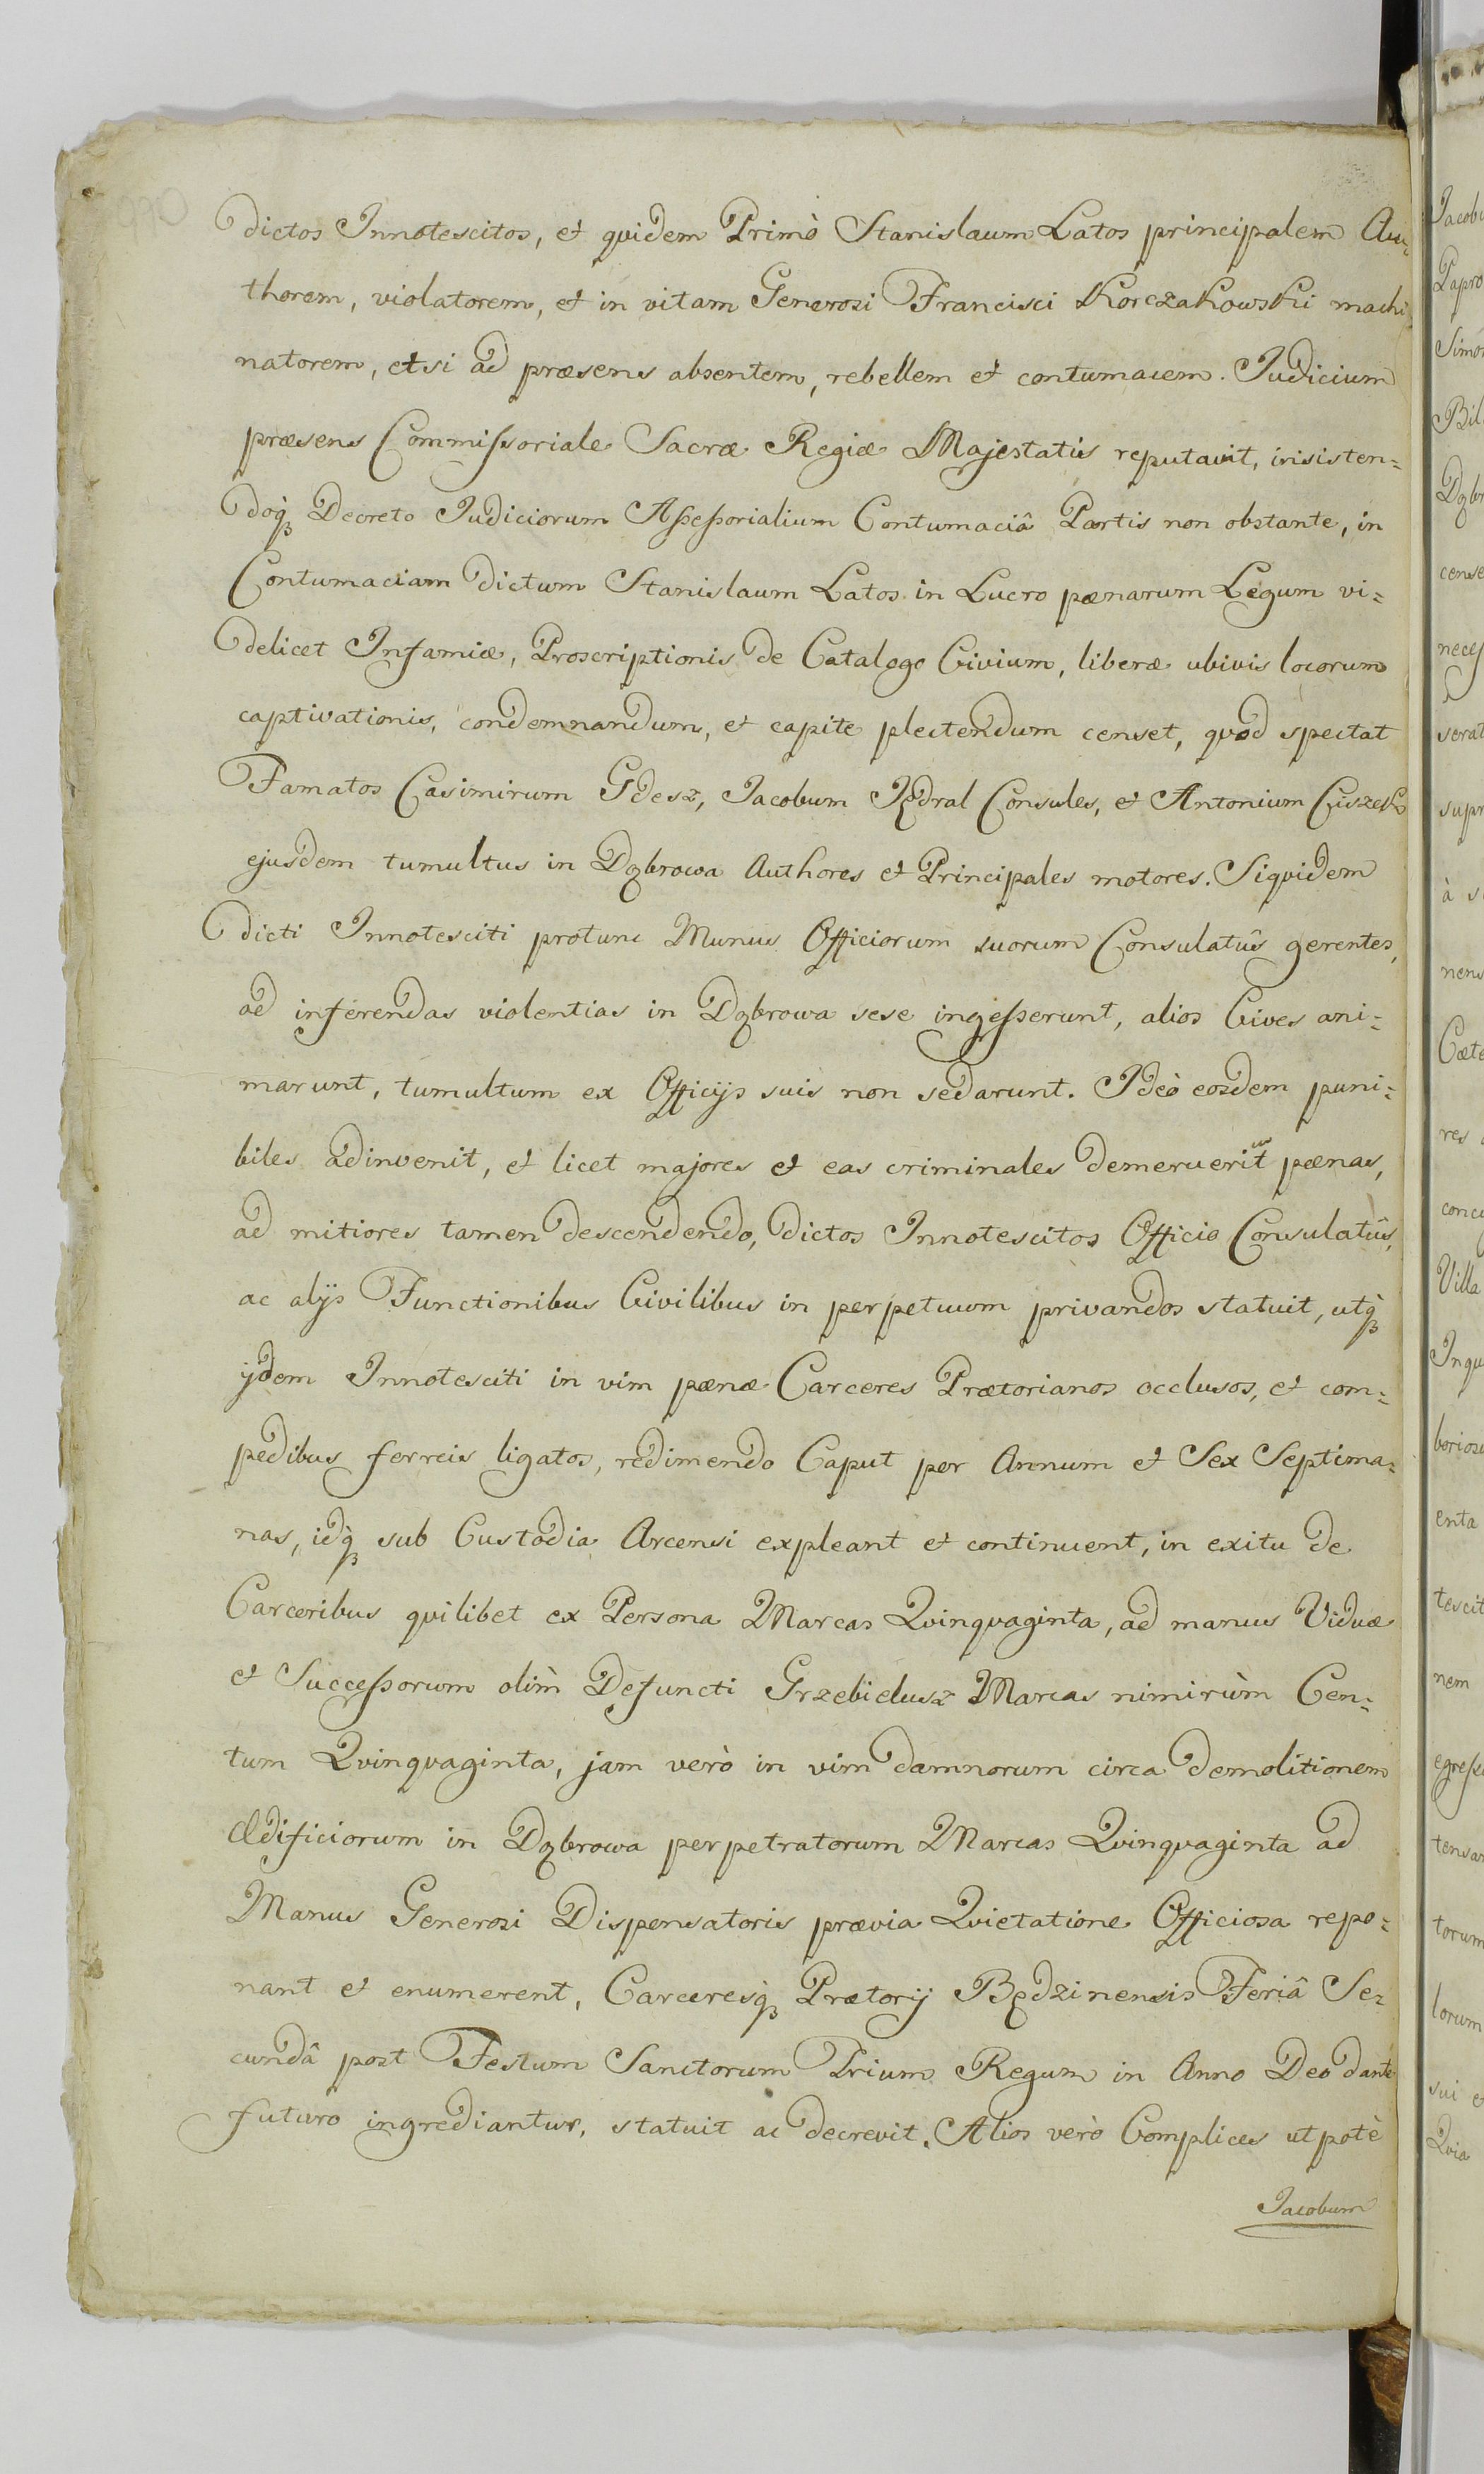 dictos Innotescitos, et qvidem Primò Stanislaum Latos principalem Au-
thorem, violatorem, et in vitam Generosi Francisci Korczakowski machi
natorem, etsi ad præsens absentem, rebellem et contumacem. Judicium
præsens Commissoriale Sacræ Regiæ Majestatis reputavit, insisten=
doq3 Decreto Judiciorum Assessorialium Contumaciâ Partis non obstante, in
Contumaciam dictum Stanislaum Latos in Lucro pænarum Legum vi=
delicet Infamiæ, Proscriptionis de Catalogo Civium, liberæ ubivis locorum
captivationis, condemnandum, et capite plectendum censet, qvod spectat
Famatos Casimirum Gdesz, Jacobum Kędral Consules, et Antonium Ciszek
ejusdem tumultus in Dąbrowa Authores et Principales motores. Siqvidem
dicti Innotesciti protunc Munus Officiorum suorum Consulatûs gerentes,
ad inferendas violentias in Dąbrowa sese ingesserunt, alios Cives ani=
marunt, tumultum ex Officijs suis non sedarunt. Ideò eosdem puni=
biles adinvenit, et licet majores et eas criminales demeruerit pænas,
ad mitiores tamen descendendo, dictos Innotescitos Officio Consulatûs,
ac alijs Functionibus Civilibus in perpetuum privandos statuit, utq3
ijdem Innotesciti in vim pænæ Carceres Prætorianos occlusos, et com=
pedibus ferreis ligatos, redimendo Caput per Annum et Sex Septima=
nas, idq3 sub Custodia Arcensi expleant et continuent, in exitu de
Carceribus qvilibet ex Persona Marcas Qvinqvaginta, ad manus Viduæ
et Successorum olìm Defuncti Grzebielusz Marcas nimirùm Cen=
tum Qvinqvaginta, jam verò in vim damnorum circa demolitionem
Ædificiorum in Dąbrowa perpetratorum Marcas Qvinqvaginta ad
Manus Generosi Dispensatoris prævia Qvietatione Officiosa repo=
nant et enumerent, Carceresq3 Prætorij Będzinensis Feriâ Se=
cundâ post Festum Sanctorum Trium Regum in Anno Deo dante
futuro ingrediantur, statuit ac decrevit. Alios verò Complices utpotè
Jacobum